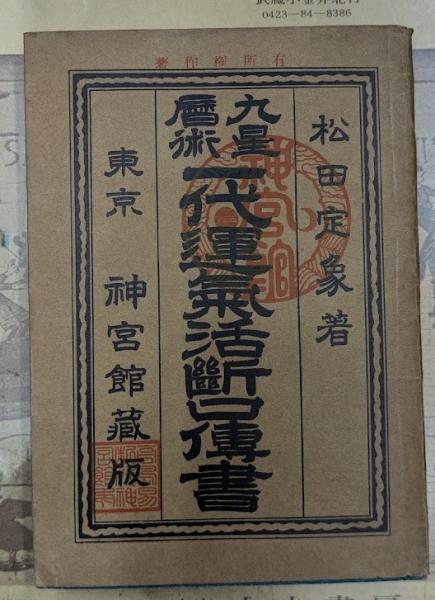 0423―84―8386
著作権所有
松田定象著
九星
暦術
一代運氣活斷口傳書
東京 神宮館藏版
神宮館